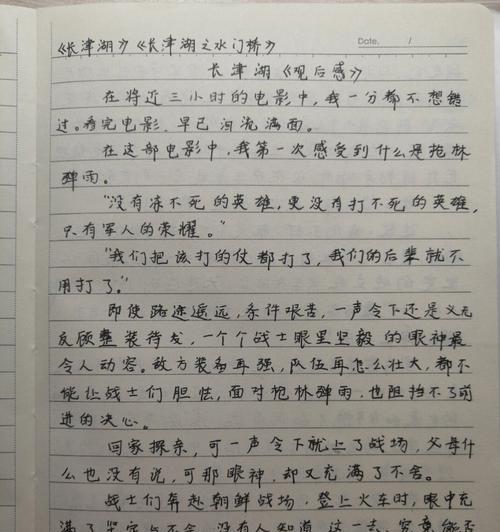 《长津湖》《长津湖之水门桥》
Date. /
长津湖《观后感》
在将近三小时的电影中,我一分都不想错
过。看完电影,早已泪流满面。
在这部电影中,我第一次感受到什么是枪林
弹雨。
"没有冻不死的英雄,更没有打不死的英雄,
只有军人的荣耀。"
"我们把该打的仗都打了,我们的后辈就不
用打了。"
即使路途遥远,条件艰苦,一声令下还是义无
反顾整装待发,一个个战士眼里坚毅的眼神最
令人动容。敌方装备再强,队伍再怎么壮大,都不
能让战士们胆怯,面对枪林弹雨,也阻挡不了前
进的决心。
回家探亲,可一声令下就上了战场,父母什
么也没有说,可那眼神,却又充满了不舍。
战士们奔赴朝鲜战场,登上火车时,眼中充
满了坚定与不舍,没有人知道,这一去,究竟能否